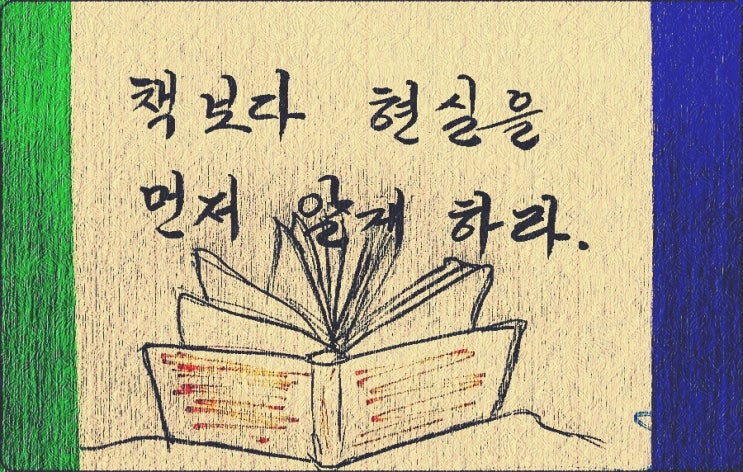 책보다 현실을
먼저 알게 하라.